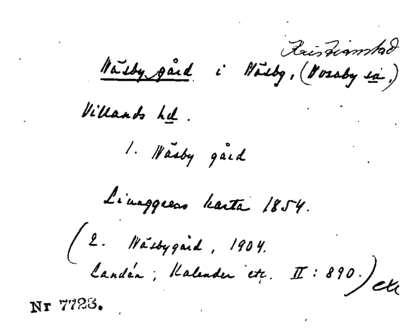 Kristianstad
Näsby gård i Näsby, (Nosaby sn.)
Villands hd.
1. Näsby gård
Ljunggrens karta 1854.
(2. Näsbygård, 1904.
Landén, Kalender etc. II: 890.) exc
Nr 7728.